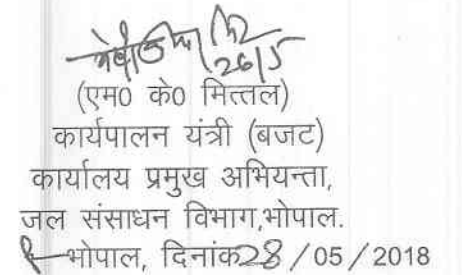 26/5
(एम0 के0 मित्तल)
कार्यपालन यंत्री (बजट)
कार्यालय प्रमुख अभियन्ता,
जल संसाधन विभाग,भोपाल.
भोपाल, दिनांक28/05/2018